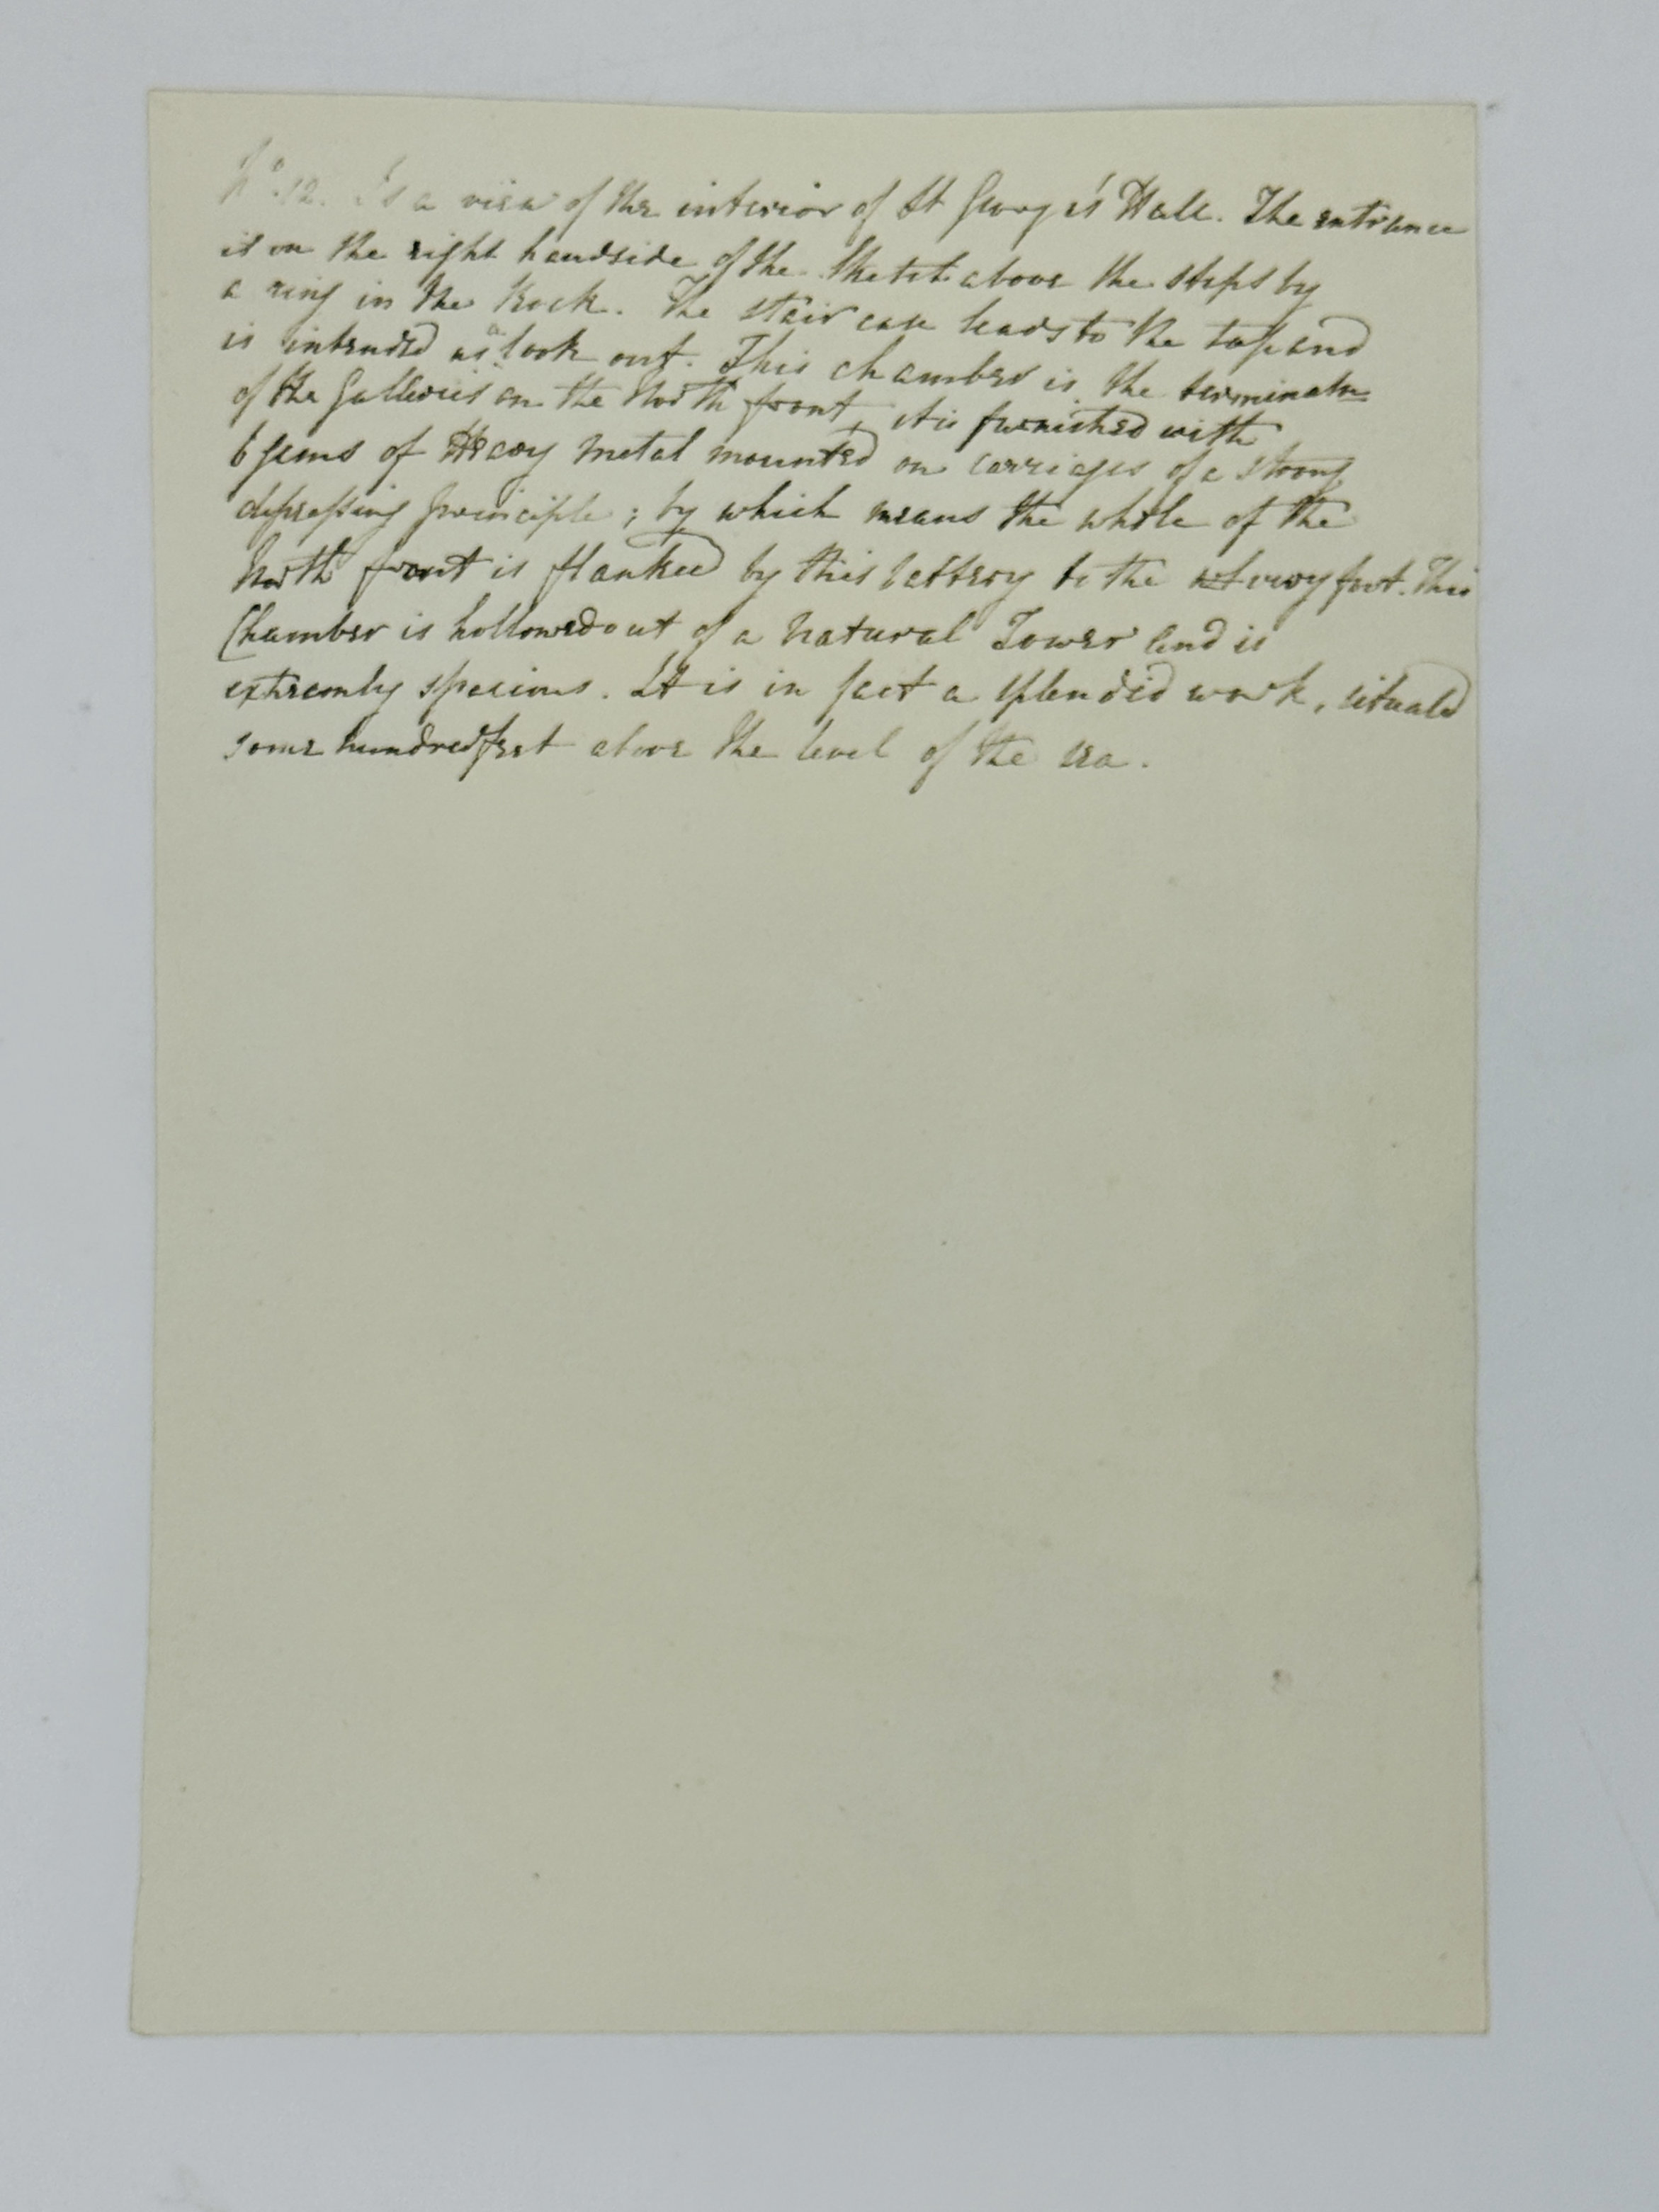 No. 12. Is a view of the interior of St George's Hall. The entrance
is on the right handside of the Sketch above the steps by
a ring in the Rock. The stair case leads to the top and
is intended as a look out. This chamber is the terminatn
of the Galleries on the North front, it is furnished with
6 guns of Heavy metal mounted on carriages of a strong
depressing principle; by which means the whole of the
North front is flanked by this battery to the very foot. This
Chamber is hollowed out of a natural Tower and is
extremly spacious. It is in fact a splendid work, situated
some hundred feet above the level of the sea.